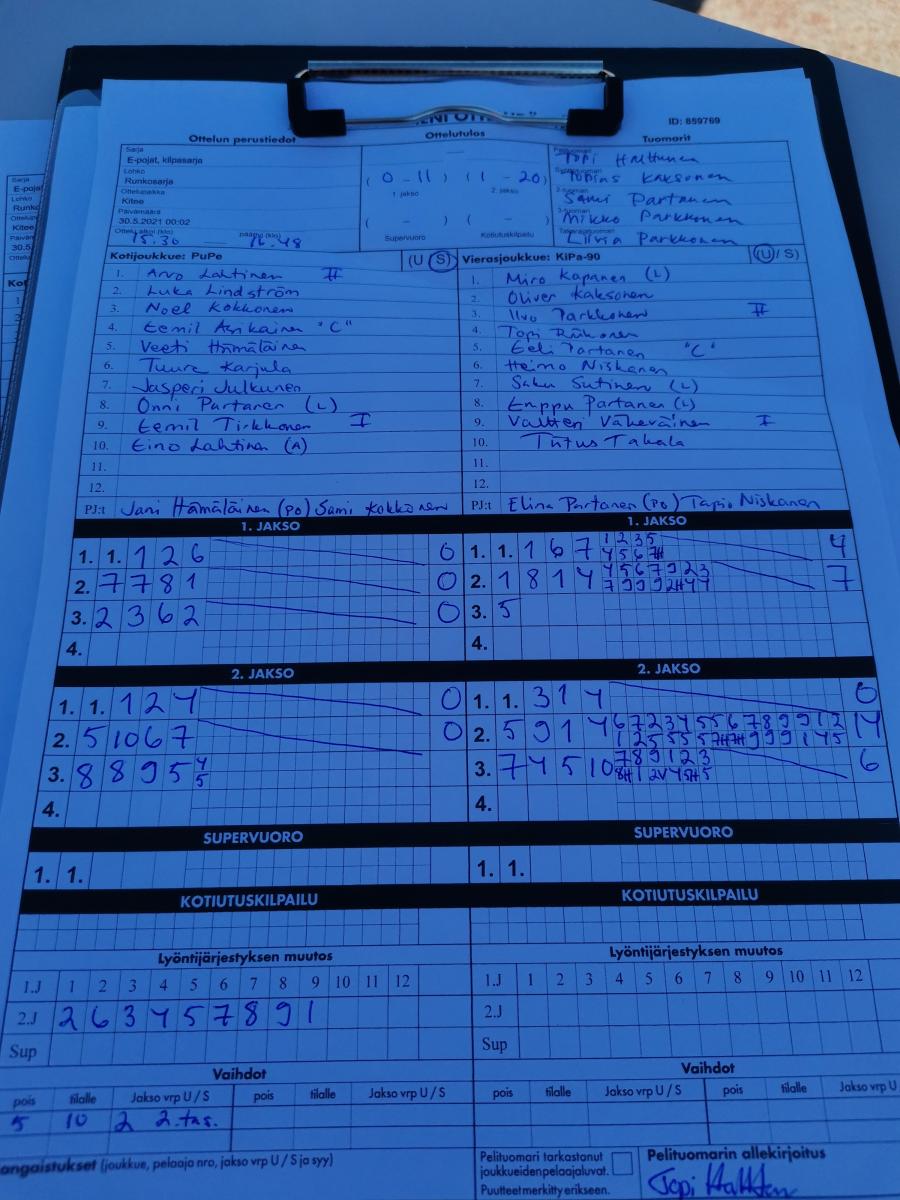 ID: 859769
Ottelun perustiedot Ottelutulos Tuomarit
Sarja
E-pojat, kilpasarja
Lohko
Runkosarja
Ottelupaikka
Kitee
Päivämäärä
30.5.2021 00:02
15.30 — 16.48
( 0 - 11 ) ( 1 - 20 )
1. jakso 2. jakso
( - ) ( - )
Supervuoro Kotiutuskilpailu
Topi Halttunen
Topias Kaksonen
Sami Partanen
Mikko Parkkonen
Liivia Parkkonen
Kotijoukkue: PuPe (U S)
1. Arvo Lahtinen II
2. Luka Lindström
3. Noel Kokkonen
4. Eemil Asikainen "C"
5. Veeti Hämäläinen
6. Tuure Karjula
7. Jasperi Julkunen
8. Onni Partanen (L)
9. Eemil Tirkkonen I
10. Eino Lahtinen (A)
11.
12.
PJ:t Jani Hämäläinen (PO) Sami Kokkonen
Vierasjoukkue: KiPa-90 (U / S)
1. Miro Kapanen (L)
2. Oliver Kaksonen
3. Ilvo Parkkonen II
4. Topi Riikonen
5. Eeli Partanen "C"
6. Heimo Niskanen
7. Saku Sutinen (L)
8. Enppu Partanen (L)
9. Valtteri Väkeväinen I
10. Tiitus Takala
11.
12.
PJ:t Elina Partanen (PO) Tapio Niskanen
1. JAKSO
1. 1. 1 2 6 0
2. 7 7 8 1 0
3. 2 3 6 2 0
4.
1. JAKSO
1. 1. 1 6 7 1 2 3 5 4
4 5 6 7H
2. 1 8 1 4 4 5 6 7 9 2 3 7
7 9 9 9 2H 4 4
3. 5
4.
2. JAKSO
1. 1. 1 2 4 0
2. 5 10 6 7 0
3. 8 8 9 5 4
5
4.
2. JAKSO
1. 1. 3 1 4 0
2. 5 9 1 4 6 7 2 3 4 5 5 6 7 8 9 9 1 2 14
1 2 5 5 5 5 7H 7H 9 9 9 1 4 5
3. 7 4 5 10 7 8 9 1 2 3 6
8H 1 2V 4 5H 5
4.
SUPERVUORO SUPERVUORO
1. 1. 1. 1.
KOTIUTUSKILPAILU KOTIUTUSKILPAILU
Lyöntijärjestyksen muutos Lyöntijärjestyksen muutos
1.J 1 2 3 4 5 6 7 8 9 10 11 12 1.J 1 2 3 4 5 6 7 8 9 10 11 12
2.J 2 6 3 4 5 7 8 9 1 2.J
Sup Sup
Vaihdot Vaihdot
pois tilalle Jakso vrp U / S pois tilalle Jakso vrp U / S pois tilalle Jakso vrp U / S pois tilalle Jakso vrp U
5 10 2 2. tas.
angaistukset (joukkue, pelaaja nro, jakso vrp U / S ja syy)
Pelituomari tarkastanut
joukkueiden pelaajaluvat.
Puutteet merkitty erikseen.
Pelituomarin allekirjoitus